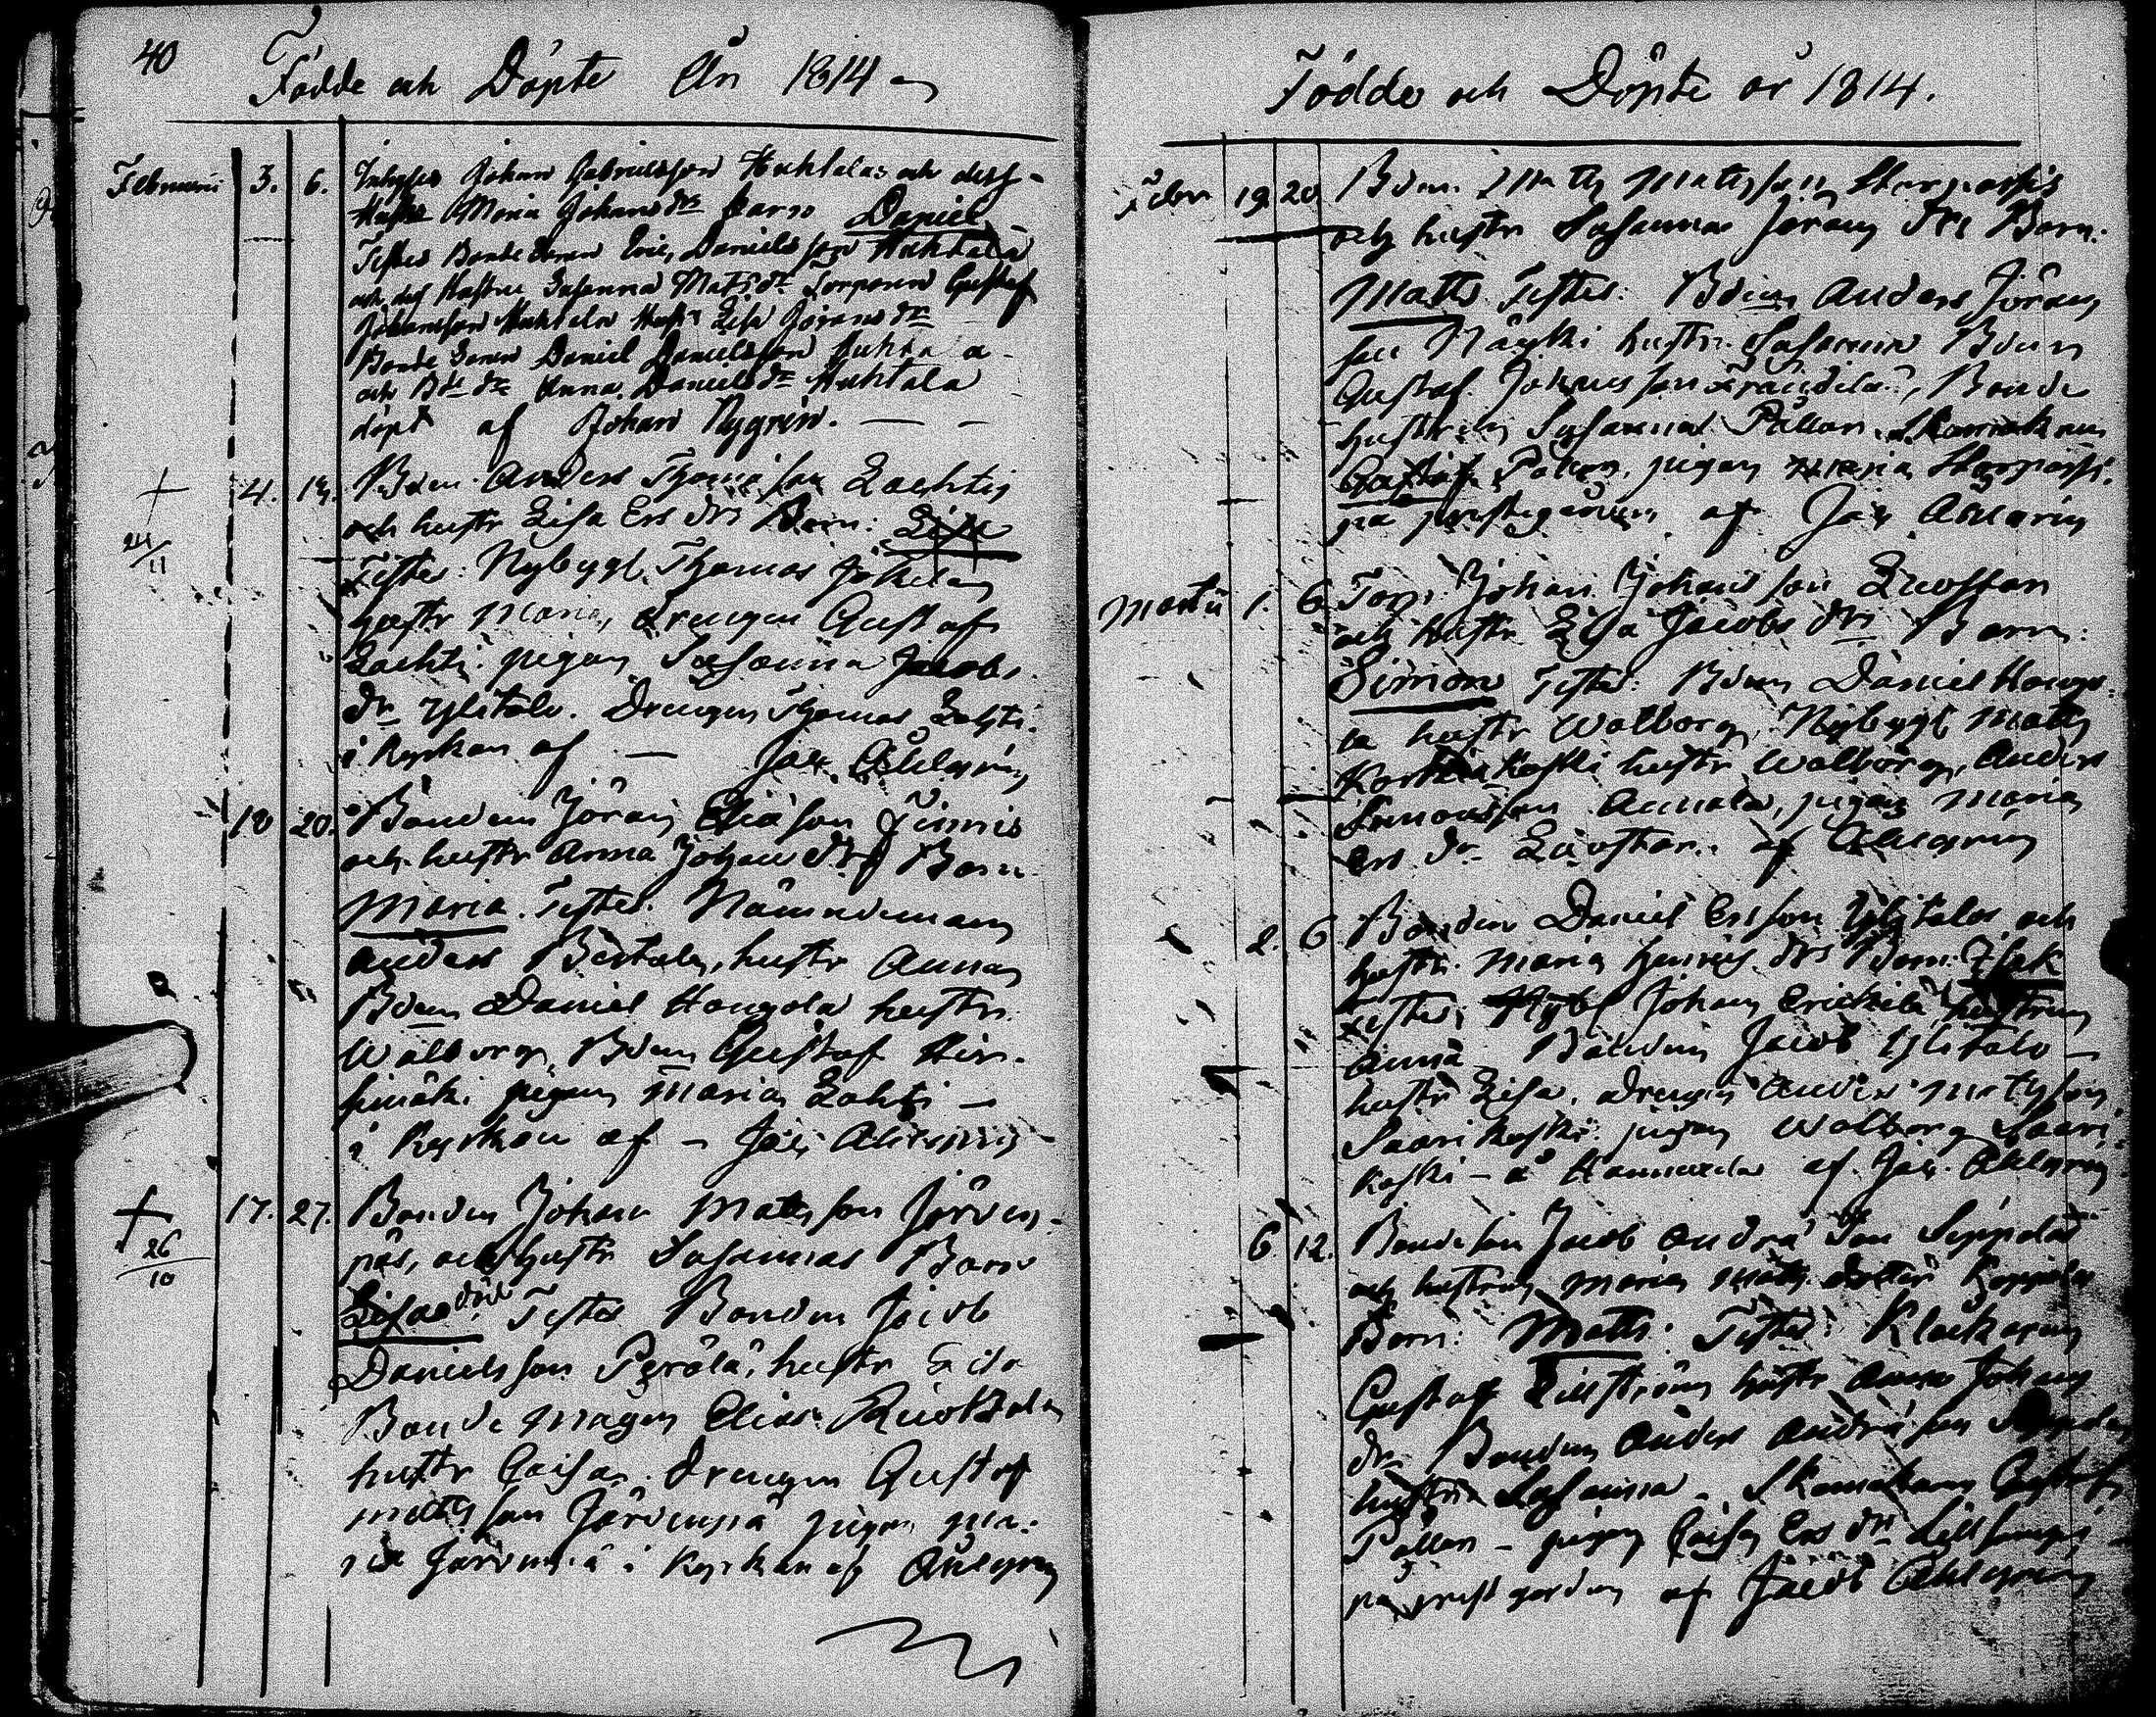 40
Födde och Döpte År 1814
Februarii 3. 6. Inhyses Johan Gabrielsson Huhtala och dess
Hustr Maria Johansdr barn Daniel
Testes Bonde Sonen Eric Danielsson Huhtala
och dess Hustru Susanna Matsdr Gustaf
Johansson Huhtala Hustr Lisa Göransdr
Bonde Sonen Daniel Danielsson Juhta a
och Bde dr Anna Danielsdr Huhtala
döpt af Johan Nygrén.
4. 13. Bden Anders Thomasson Lachtis
och hustr Lisa Ersdrs Barn: Lisa
24/11 Testes: Nybygl. Thomas
hustr Maria, drengen Gustaf
Lachti. pigan Susanna Jacobs
dr Ylitalo. Drengen Thomas Lahti.
i kyrkan af Jac. Ahlgrén
18 20. Bonden Jöran Eliasson Juunis
och hustr Anna Johansdrs Barn
Maria. Testes. Nämndeman
Anders Bertala, hustr Anna
Bden Daniel Hougola hustr.
Walborg, Bden Gustaf Hir-
simäki pigan Maria Lahti
i Kyrkan af Jac. Ahlgrén
17. 27. Bonden Johan Mattsson Järven-
pää, och hustr Susannas Barn
26/10 Lisa död. Testes Bonden Jacob
Danielsson Perälä, hustr Lisa
Bonde mågen Elias Ruokola
hustr Caisa. drengen Gustaf
Mattsson Järvenpä pigan Ma-
ria Järvenpä i kyrkan af Ahlgrén
Födde och Döpte år 1814.
Febr 19. 20. Bden Matts Matsson Storpassis
och hustr Susanna Jöransdrs Barn.
Matts Testes: Bden Anders Jöran
son Näyki hustr. Susanna Bden
Gustaf Johansson, Bonde
hustrun Susanna Pållari. Skomakaren
Gustaf Pålen, pigan Maria Storpassi.
på prestgården af Jac Ahlgrén
Martii 1. 6. Torp. Johan Johansson Luostari
och hustr Lisa Jacobsdrs Barn:
Simon Testes: Bden Daniel Hougo-
la hustr Walborg, Nybygl Matts
Kortkoski hustr Walborg, Anders
Simonsson Annala, pigan Maria
Ersdr Luostari. af Ahlgrén
2. 6 Bonden Daniel Ersson Ylitalos och
hustr. Maria Henricsdrs Barn. Isak
Testes, Johan Erickilä hustrun
Anna Bonden Jacob Ylitalo
hustr Lisa. drengen Anders Mattsson
Saarikoski. pigan Walborg Saari-
koski - å Hannuxela af Jac. Ahlgrén
6. 12. Bondeson Jacob Andrä Son Seppälä
och hustrun Maria Matts dotter Koppelo
Barn: Matts. Testes: Klockaren
Gustaf Lillström hustr Anna Johans
dr Bonden Anders Andrä son Seppälä
hustru Susanna. Skomakaren Gustaf
Pållari - pigan Caisa Ersdr
på prest gården af Jacob Ahlgrén